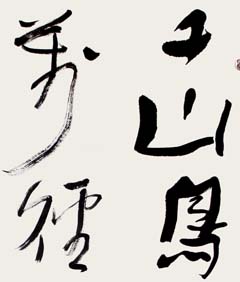 千山鳥
萬徑